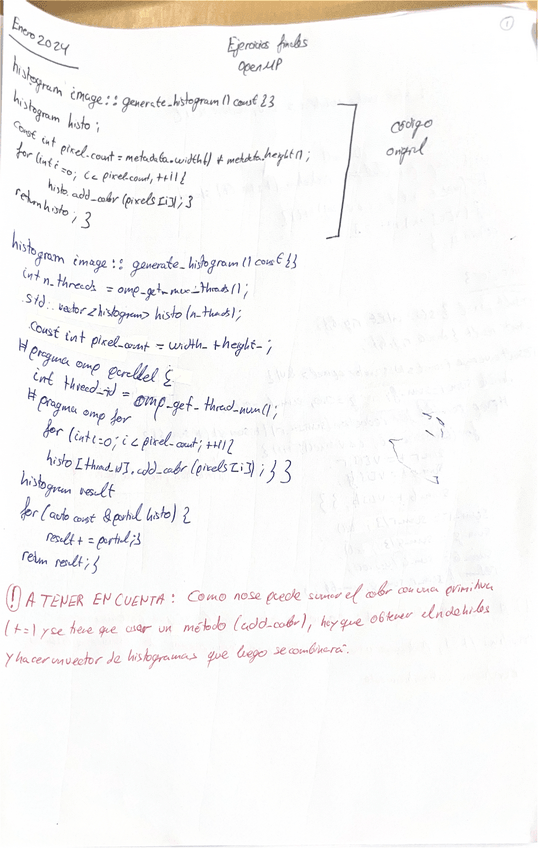 1
Enero 2024
Ejercicios finales
OpenMP
histogram image:: generate_histogram () const {}
histogram histo;
const int pixel_count = metadata.width() * metadata.height();
for (int i=0; i< pixel_count, ++i){
histo.add_color (pixels[i]);}
return histo; }
código
original
histogram image:: generate_histogram () const {}
int n_threads = omp_get_max_threads();
std:: vector <histogram> histo (n_threads);
const int pixel_count = width_ + height_;
# pragma omp parallel {
int thread_id = omp_get_thread_num();
# pragma omp for
for (int i=0; i < pixel_count; ++i){
histo [thread_id].add_color (pixels[i]); } }
histogram result
for (auto const & partial histo) {
result += partial;}
return result; }
! A TENER EN CUENTA: Como no se puede sumar el color con una primitiva
(+=) y se tiene que usar un método (add_color), hay que obtener el n de hilos
y hacer un vector de histogramas que luego se combinará.